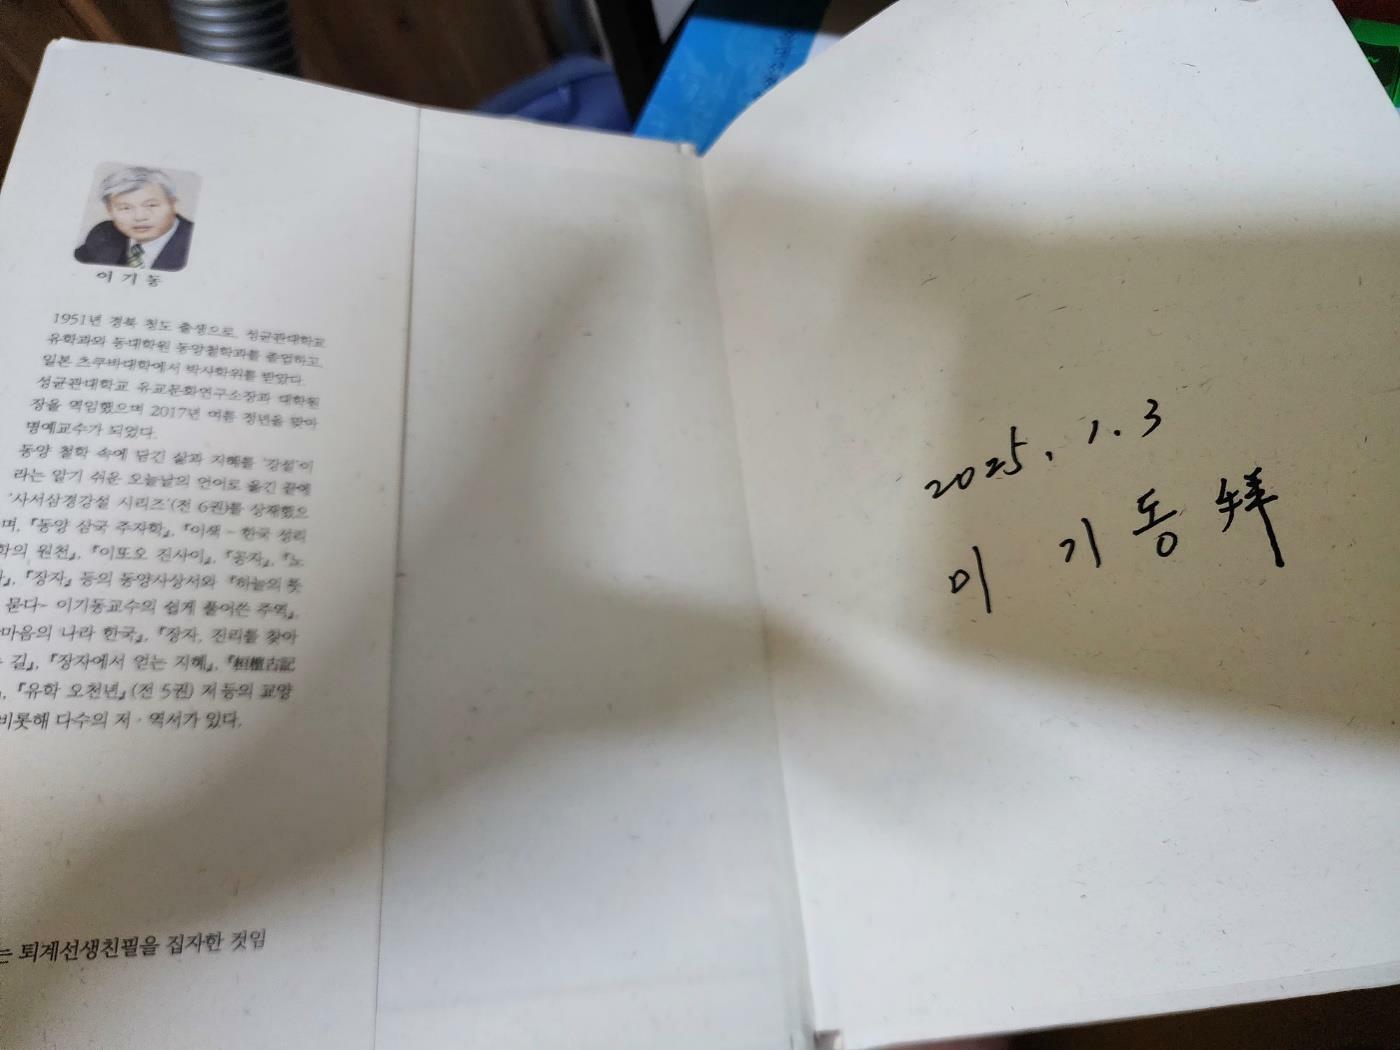 이 기 동
1951년 경북 청도 출생으로, 성균관대학교
유학과와 동대학원 동양철학과를 졸업하고,
일본 츠쿠바대학에서 박사학위를 받았다.
성균관대학교 유교문화연구소장과 대학원
장을 역임했으며 2017년 여름 정년을 맞아
명예교수가 되었다.
동양 철학 속에 담긴 삶과 지혜를 '강설'이
라는 알기 쉬운 오늘날의 언어로 옮긴 끝에
'사서삼경강설 시리즈'(전 6권)를 상재했으
며, 『동양 삼국 주자학』, 『이색 - 한국 성리
학의 원천』, 『이또오 진사이』, 『공자』, 『노
자』, 『장자』 등의 동양사상서와 『하늘의 뜻
묻다~ 이기동교수의 쉽게 풀어쓴 주역』,
마음의 나라 한국』, 『장자, 진리를 찾아
길』, 『장자에서 얻는 지혜』, 『桓檀古記
』, 『유학 오천년』(전 5권) 저 등의 교양
비롯해 다수의 저·역서가 있다.
는 퇴계선생친필을 집자한 것임
2025. 1. 3
이 기 동 拜